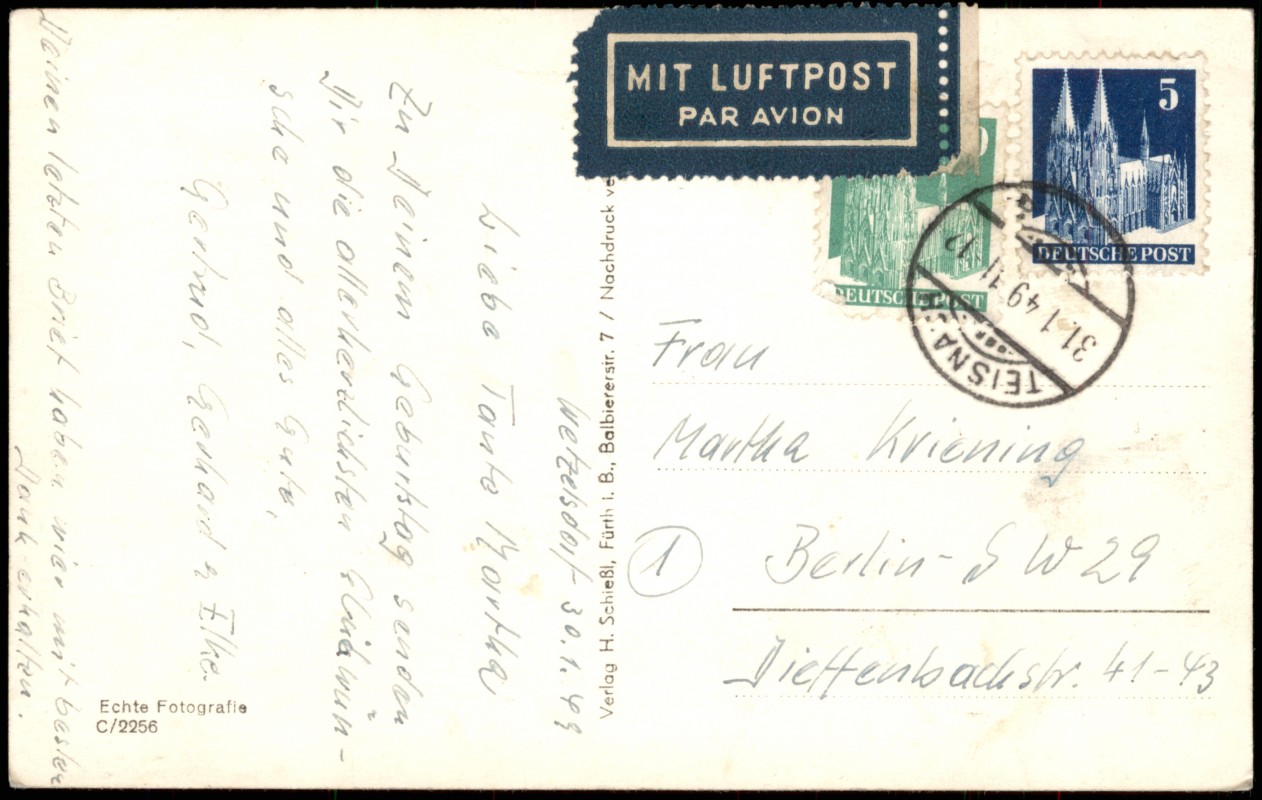 MIT LUFTPOST
PAR AVION
5
DEUTSCHE POST
DEUTSCHE POST
TEISNACH
31.1.49 11-12
Wetzelsdorf 30.1.49
Liebe Tante Martha
Zu Deinem Geburtstag senden
Dir die allerherzlichsten Glückwün-
sche und alles Gute,
Gertrud, Gerhard u. Elke.
Deinen letzten Brief haben wir mit bestem
Dank erhalten.
Echte Fotografie
C/2256
Verlag H. Schießl, Fürth i. B., Balbiererstr. 7 / Nachdruck ve
Frau
Martha Kriening
1
Berlin-SW 29
Dieffenbachstr. 41-43